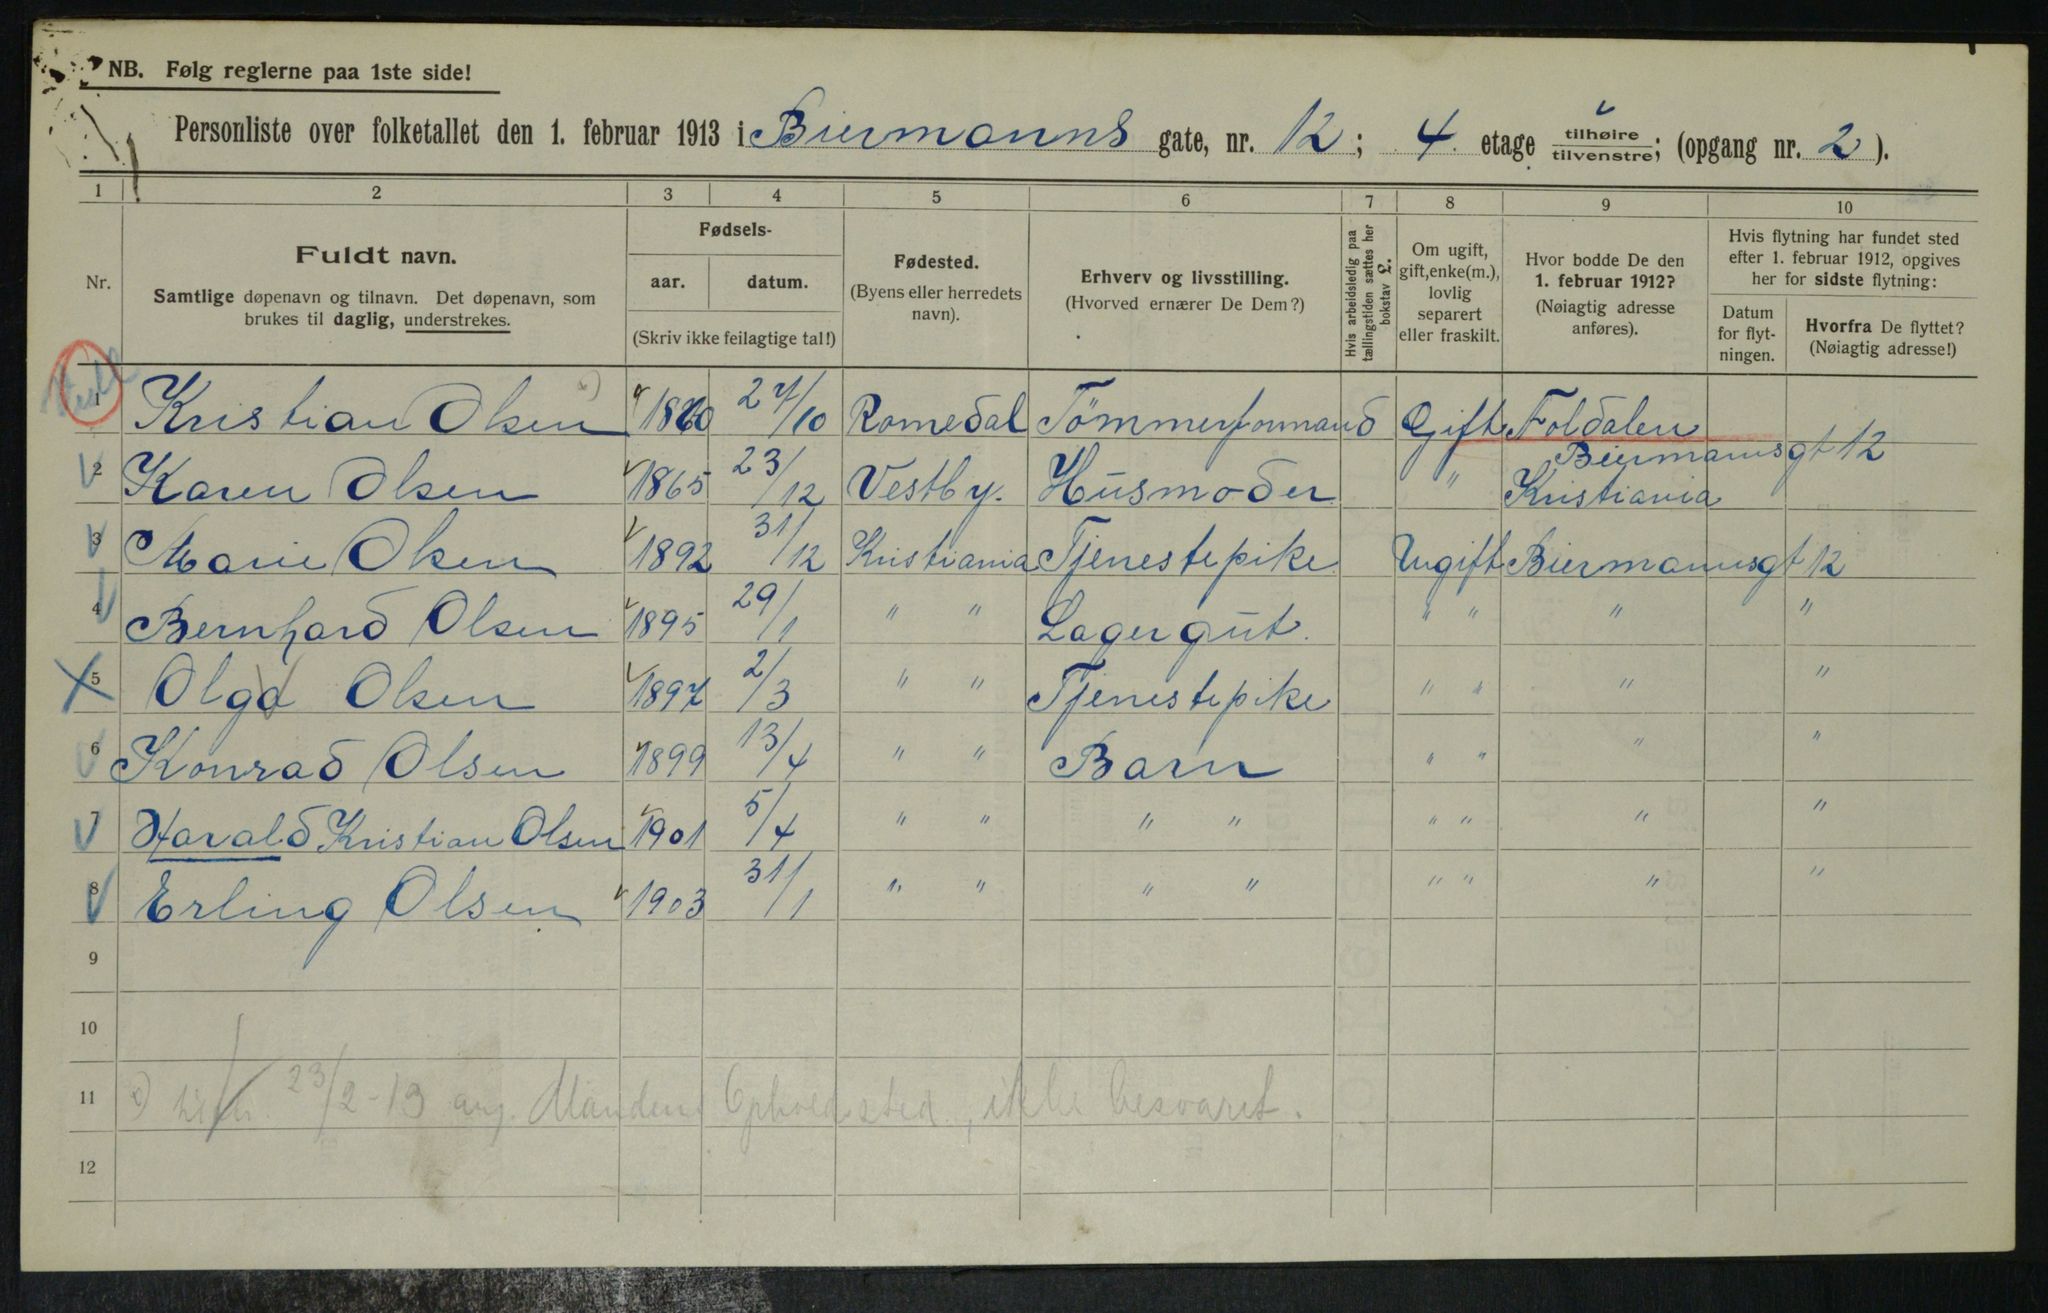 NB. Følg reglerne paa 1ste side!
Personliste over folketallet den 1. februar 1913 i Biermanns gate, nr. 12; 4 etage tilhøire/tilvenstre; (opgang nr. 2).
1 2 3 4 5 6 7 8 9 10
Nr.
Fuldt navn.
Samtlige døpenavn og tilnavn. Det døpenavn, som
brukes til daglig, understrekes.
Fødsels-
aar. datum.
(Skriv ikke feilagtige tal!)
Fødested.
(Byens eller herredets
navn).
Erhverv og livsstilling.
(Hvorved ernærer De Dem?)
Hvis arbeidsledig paa
tællingstiden sættes her
bokstav £.
Om ugift,
gift, enke(m.),
lovlig
separert
eller fraskilt.
Hvor bodde De den
1. februar 1912?
(Nøiagtig adresse
anføres).
Hvis flytning har fundet sted
efter 1. februar 1912, opgives
her for sidste flytning:
Datum
for flyt-
ningen.
Hvorfra De flyttet?
(Nøiagtig adresse!)
1 Kristian Olsen 1860 27/10 Romedal Tömmerformand Gift Foldalen
Biermannsgt 12
2 Karen Olsen 1865 23/12 Vestby. Husmoder " Kristiania
3 Marie Olsen 1892 31/12 Kristiania Tjenestepike Ugift Biermannsgt 12
4 Bernhard Olsen 1895 29/1 " " Lagergut. " " " "
5 Olga Olsen 1897 2/3 " " Tjenestepike " " " "
6 Konrad Olsen 1899 13/4 " " Barn " " " "
7 Harald Kristian Olsen 1901 5/4 " " " " " " " "
8 Erling Olsen 1903 31/1 " " " " " " " "
9
10
11 23/2-13 ang. Mandens Opholdsted, ikke besvaret.
12